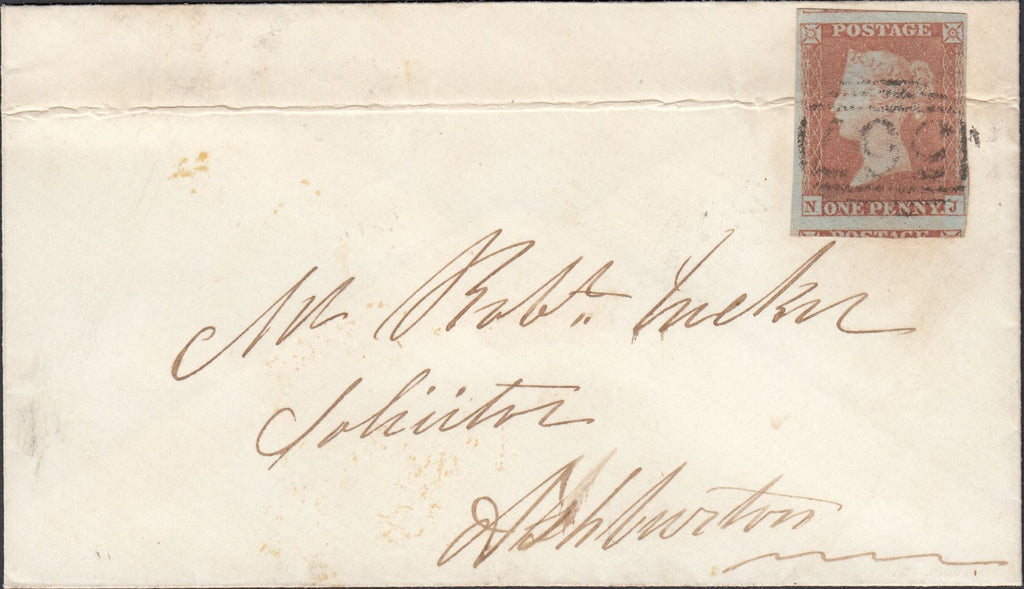 POSTAGE
N ONE PENNY J
POSTAGE
Mr Robt. Tucker
Solicitor
Ashburton